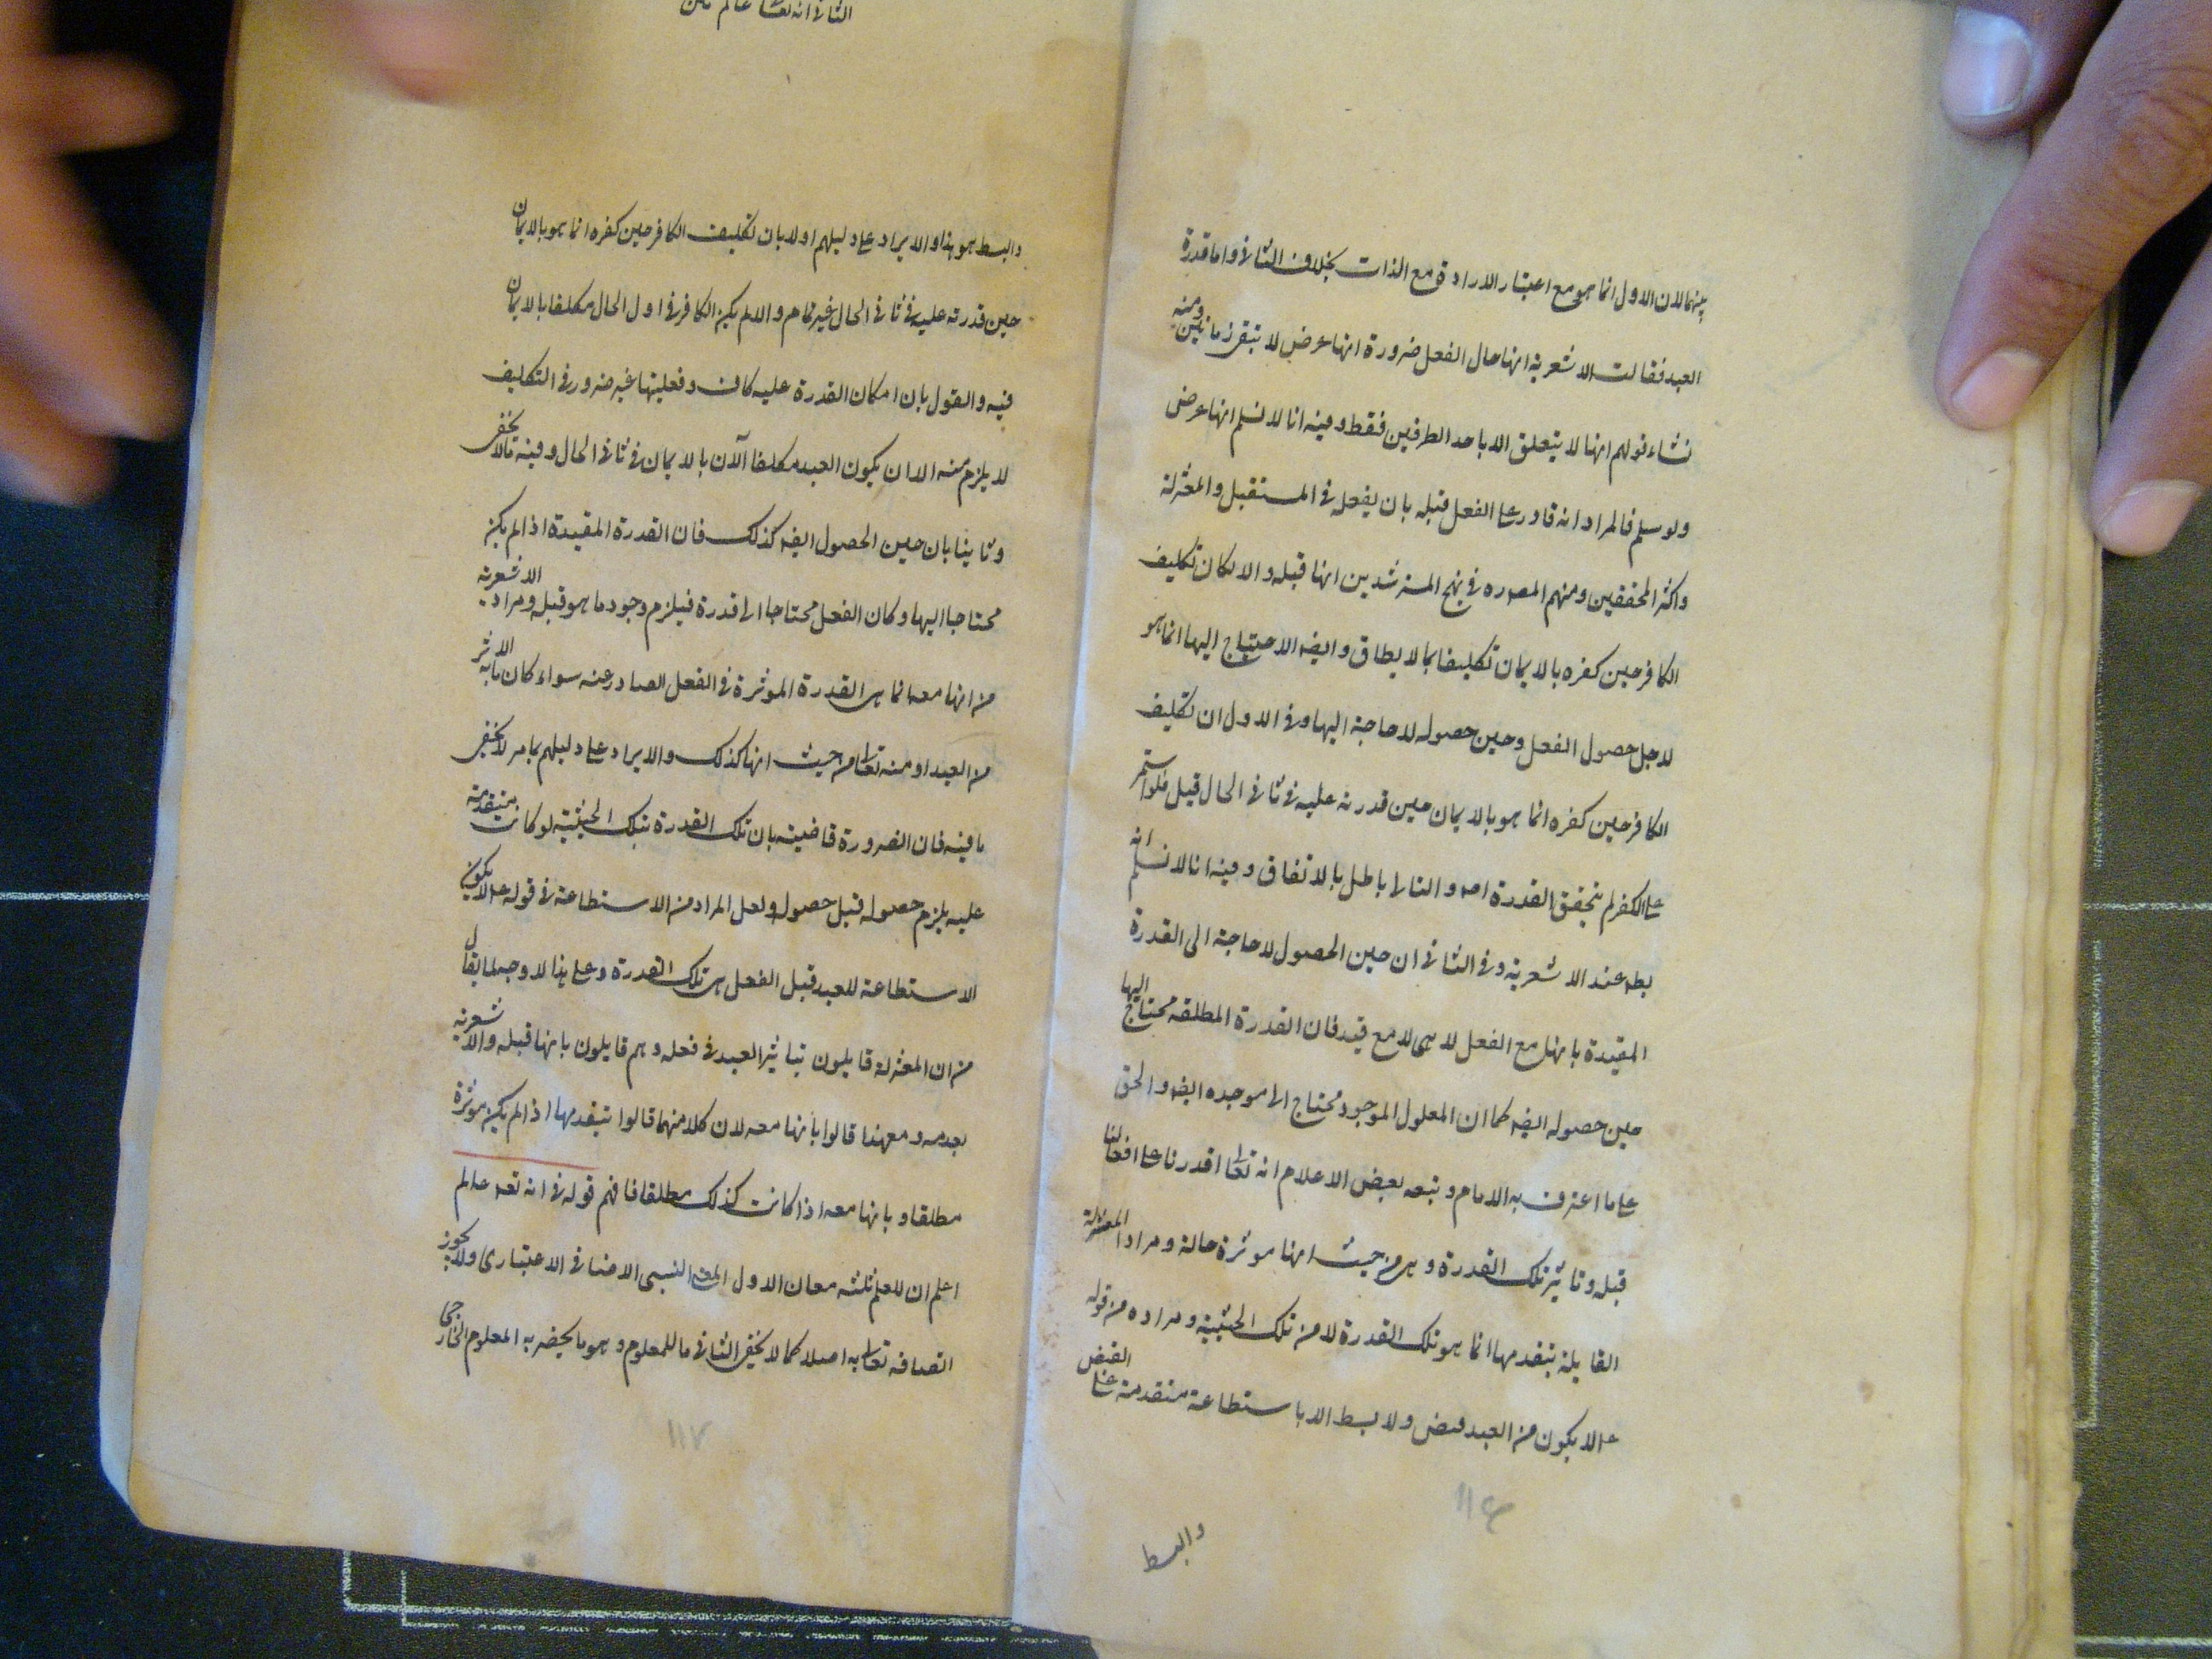 بينهما لان الاول انما هو مع اعتبار الارادة مع الذات بخلاف الثانى واما قدرة
العبد فقالت الاشعرية انها حال الفعل ضرورة انها عرض لا تبقى زمانين ومنه
نشاء قولهم انها لا يتعلق الا باحد الطرفين فقط وفيه انا لا نسلم انها عرض
ولو سلم فالمراد انه قادر على الفعل قبله بان يفعله فى المستقبل والمعتزلة
واكثر المحققين ومنهم المصره فى نهج المسترشدين انها قبله والا لكان تكليف
الكافر حين كفره بالايمان تكليفا بما لا يطاق وايضه الاحتياج اليها انما هو
لاجل حصول الفعل وحين حصوله لا حاجة اليها وفى الاول ان تكليف
الكافر حين كفره انما هو بالايمان حين قدرته عليه فى ثانى الحال قيل فلو استمر
على الكفر لم تتحقق القدرة اصه والتالى باطل بالاتفاق وفيه انا لا نسلم انه
بطه عند الاشعرية وفى الثانى ان حين الحصول لا حاجة الى القدرة
المقيدة بانها مع الفعل لا هى لا مع قيد فان القدرة المطلقه محتاج اليها
حين حصوله ايضه كما ان المعلول الموجود محتاج الى موجده ايضه والحق
على ما اعترف به الامام وتبعه بعض الاعلام انه تعالى اقدرنا على افعالنا
قبله وتاثير تلك القدرة وهى من حيث انها موثرة حاله ومراد المعتزلة
القايلة بتقدمها انما هو تلك القدرة لا من تلك الحيثية ومراده من قوله
ع لا يكون من العبد قبض ولا بسط الا باستطاعة متقدمة على القبض
والبسط
١١٦
الثانى انه تعالى عالم
والبسط هو هذا والايراد على دليلهم اولا بان تكليف الكافر حين كفره انما هو بالايمان
حين قدرته عليه فى ثانى الحال غير تمام والا لم يكن الكافر فى اول الحال مكلفا بالايمان
فيه والقول بان امكان القدرة عليه كاف وفعليتها غير ضرور فى التكليف
لا يلزم منه الا ان يكون العبد مكلفا آلان بالايمان فى ثانى الحال وفيه ما لا يخفى
وثانيا بان حين الحصول ايضه كذلك فان القدرة المقيدة اذا لم يكن
محتاجا اليها وكان الفعل محتاجا الى قدرة فيلزم وجود ما هو قبله ومراد الاشعرية
من انها معه انما هى القدرة الموثرة فى الفعل الصادر عنه سواء كان تاثير
من العبد او منه تعالى من حيث انها كذلك والايراد على دليلهم بما مر لا يخفى
ما فيه فان الضرورة قاضية بان تلك القدرة بتلك الحيثية لو كانت متقدمة
عليه يلزم حصوله قبل حصوله ولعل المراد من الاستطاعة فى قوله ع لا يكون
الاستطاعة للعبد قبل الفعل هى تلك القدرة وعلى هذا لا وجه لما يقال
من ان المعتزلة قايلون بتاثير العبد فى فعله وهم قايلون بانها قبله والاشعرية
بعدمه ومعهذا قالوا بانها معه لان كلا منهما قالوا بتقدمها اذا لم يكن موثرة
مطلقا وبانها معه اذا كانت كذلك مطلقا فافهم قوله فى انه تعه عالم
اعلم ان للعلم ثلثه معان الاول المعنى النسبى الاضافى الاعتبارى ولا يجوز
اتصافه تعالى به اصلا كما لا يخفى الثانى ما للمعلوم وهو ما يحضر به المعلوم الخارجى
١١٧